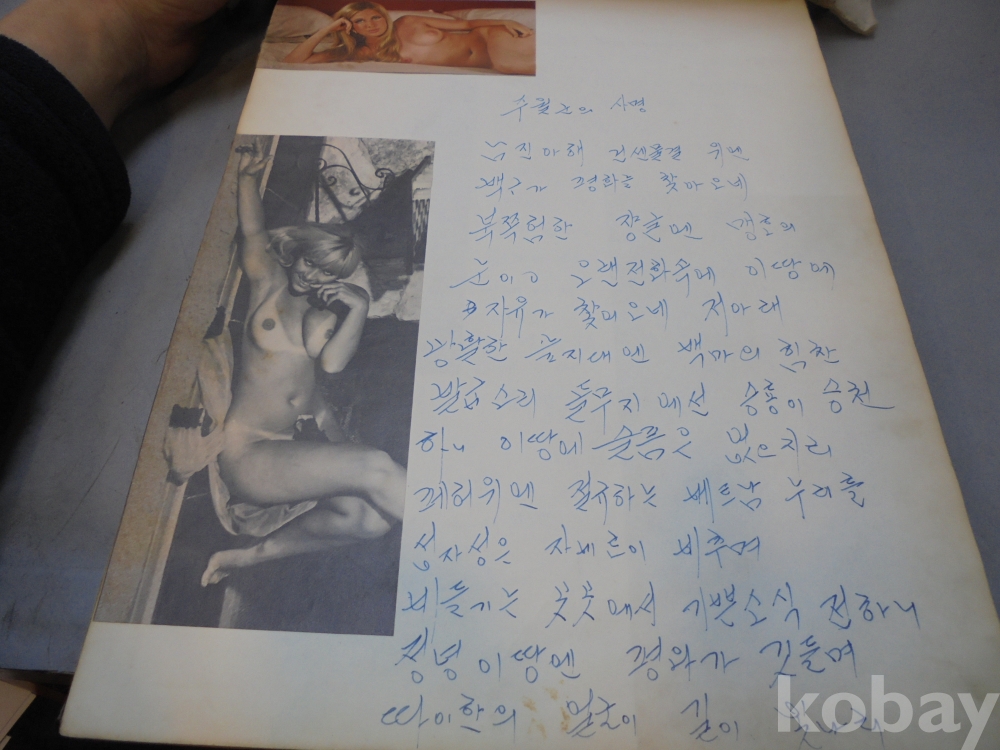 수호군의 사명
남진아해 거센물결 위엔
백구가 평화를 찾아오네
북쪽험한 장글엔 맹호의
눈이 오랜전화속에 이땅에
자유가 찾아오네 저아래
광활한 들지대엔 백마의 힘찬
발굽소리 들무지에선 승룡이 승천
하니 이땅에 슬픔은 없으지리
머리위엔 질주하는 베트남 누리를
십자성은 자비로이 비추며
비둘기는 곳곳에서 기쁜소식 전하니
정녕 이땅엔 평화가 깃들며
따이한의 얼굴이 길이
kobay